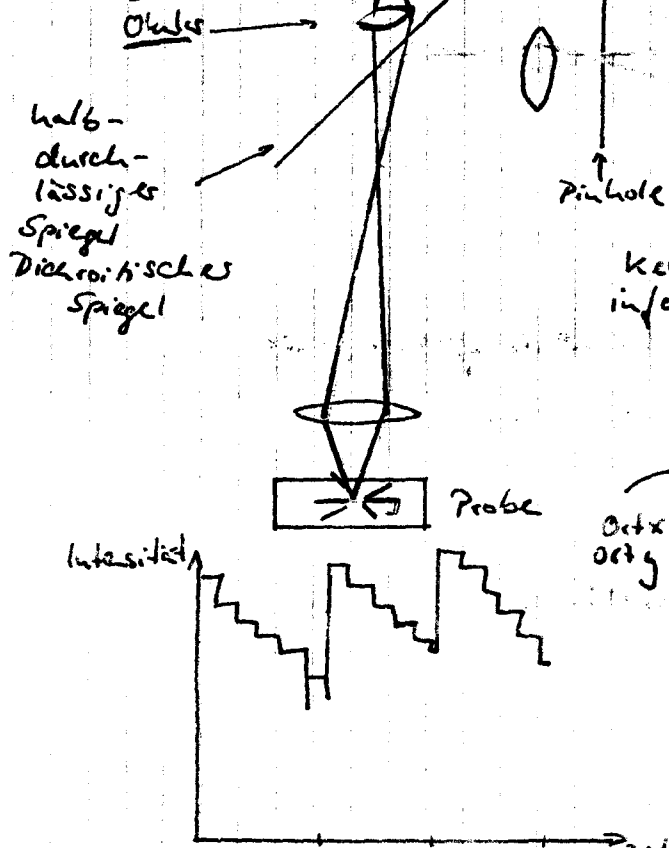 Okular
halb-
durch-
lässiges
Spiegel
Dichroitisches
Spiegel
Pinhole
Ke
inf
Probe
Ort x
Ort y
Intensität